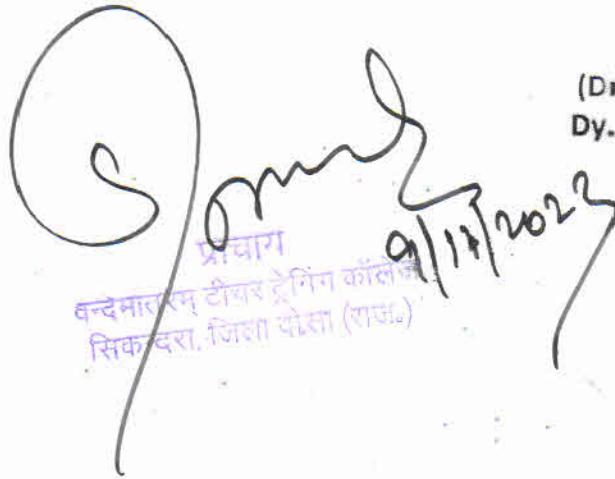 (Dr
Dy.
प्राचार्य
वन्देमातरम् टीचर ट्रेनिंग कॉलेज
सिकन्दरा, जिला दौसा (राज०)